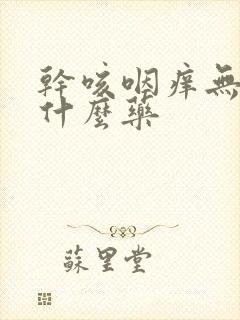 幹咳咽痒無
什麽藥
蘇里堂